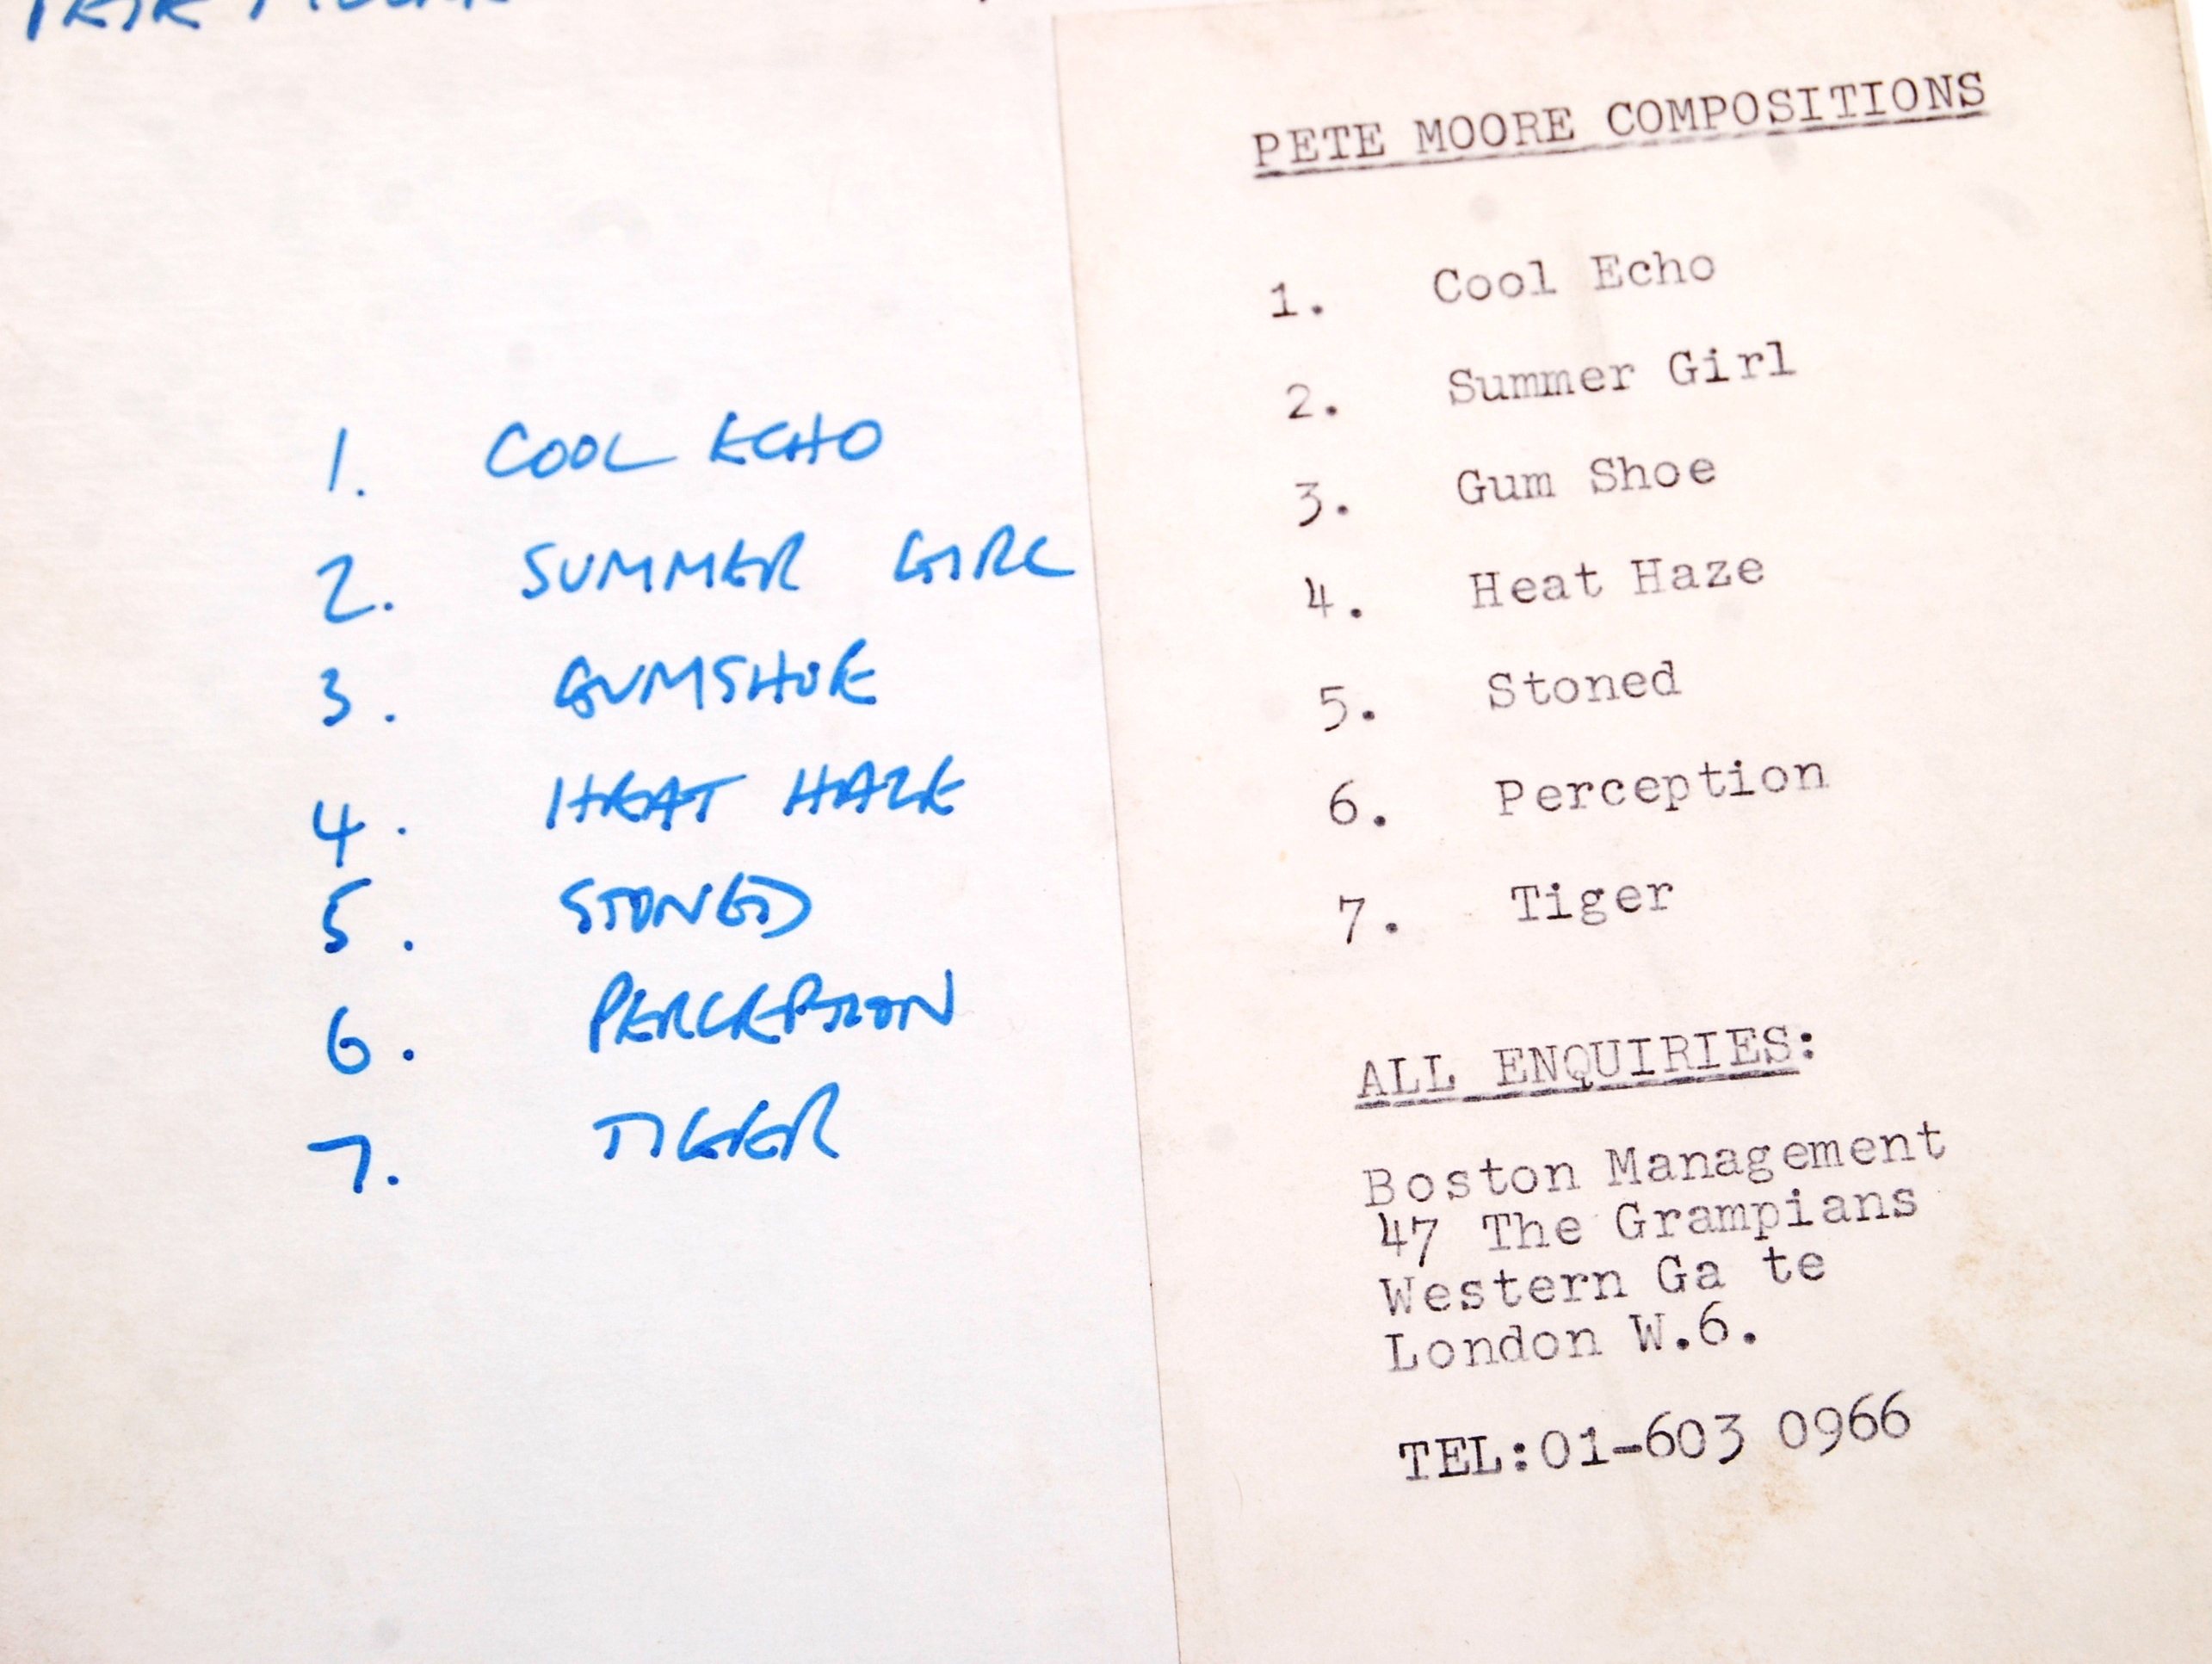 1. COOL ECHO
2. SUMMER GIRL
3. GUMSHOE
4. HEAT HAZE
5. STONED
6. PERCEPTION
7. TIGER
PETE MOORE COMPOSITIONS
1. Cool Echo
2. Summer Girl
3. Gum Shoe
4. Heat Haze
5. Stoned
6. Perception
7. Tiger
ALL ENQUIRIES:
Boston Management
47 The Grampians
Western Ga te
London W.6.
TEL:01-603 0966